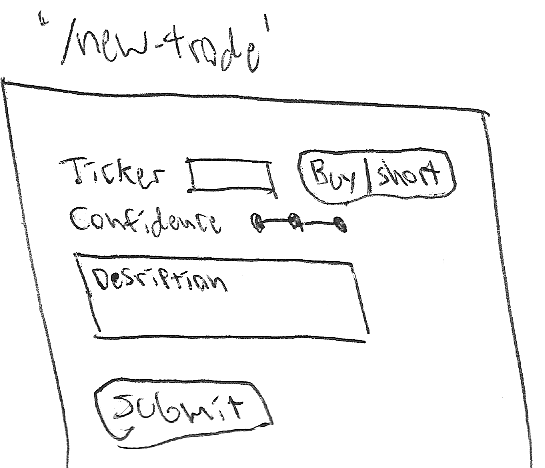 '/new-trade'
Ticker Buy|short
Confidence
Desription
Submit